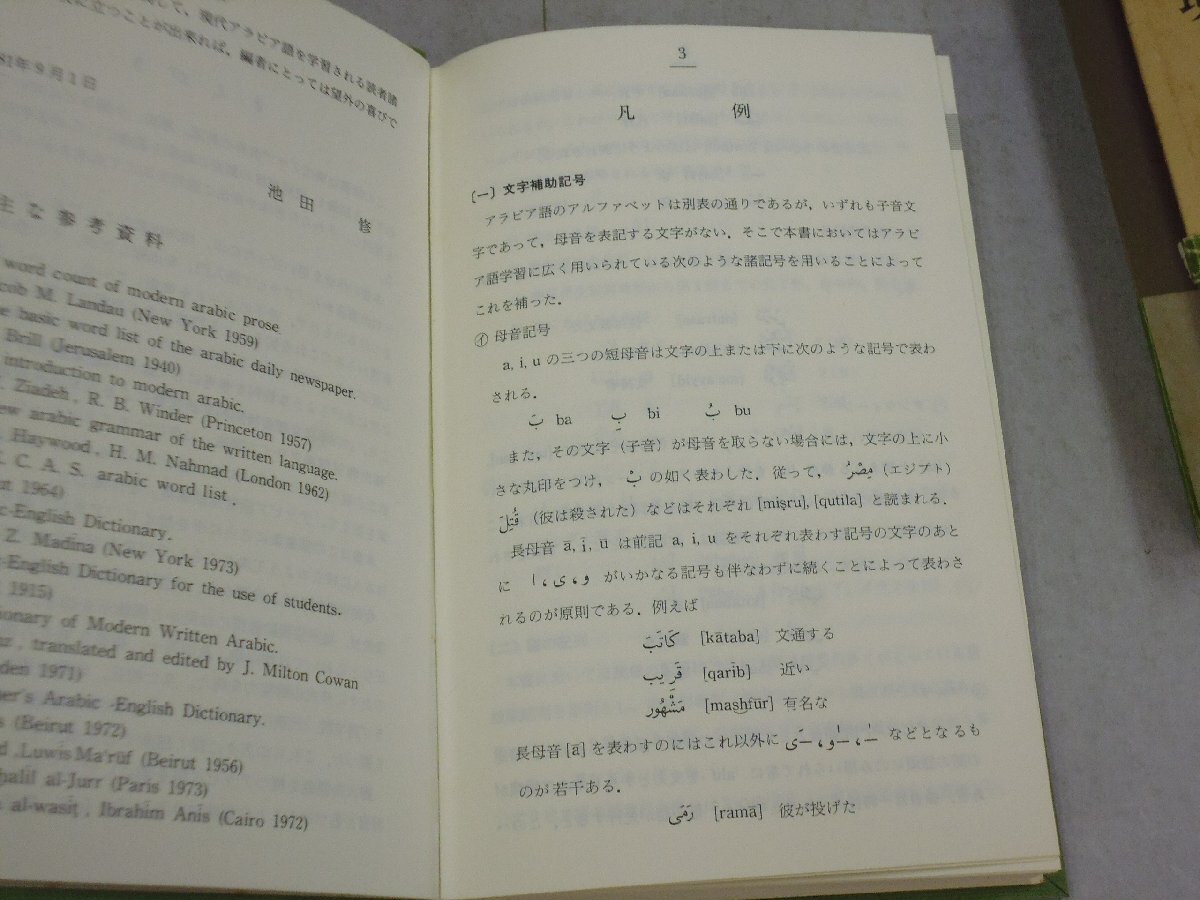 して，現代アラビア語を学習される読者諸
に立つことが出来れば，編者にとっては望外の喜びで
81年9月1日
池田 修
主な参考資料
word count of modern arabic prose.
cob M. Landau (New York 1959)
e basic word list of the arabic daily newspaper.
Brill (Jerusalem 1940)
introduction to modern arabic.
. Ziadeh, R. B. Winder (Princeton 1957)
ew arabic grammar of the written language.
. Haywood, H. M. Nahmad (London 1962)
. C. A. S. arabic word list.
ut 1964)
c-English Dictionary.
Z. Madina (New York 1973)
-English Dictionary for the use of students.
1915)
ionary of Modern Written Arabic.
az, translated and edited by J. Milton Cowan
den 1971)
er's Arabic-English Dictionary.
s (Beirut 1972)
d, Luwis Ma'rūf (Beirut 1956)
halil al-Jurr (Paris 1973)
al-wasiṭ, Ibrahim Anis (Cairo 1972)
3
凡 例
〔一〕文字補助記号
アラビア語のアルファベットは別表の通りであるが，いずれも子音文
字であって，母音を表記する文字がない．そこで本書においてはアラビ
ア語学習に広く用いられている次のような諸記号を用いることによって
これを補った．
㋑ 母音記号
a, i, u の三つの短母音は文字の上または下に次のような記号で表わ
される．
بَ ba بِ bi بُ bu
また，その文字（子音）が母音を取らない場合には，文字の上に小
さな丸印をつけ， بْ の如く表わした．従って， مِصْرُ（エジプト）
قُتِلَ（彼は殺された）などはそれぞれ [miṣru], [qutila] と読まれる．
長母音 ā, ī, ū は前記 a, i, u をそれぞれ表わす記号の文字のあと
に و، ى، ا がいかなる記号も伴なわずに続くことによって表わさ
れるのが原則である．例えば
كَاتَبَ [kātaba] 文通する
قَرِيب [qarīb] 近い
مَشْهُور [mashfūr] 有名な
長母音 [ā] を表わすのにはこれ以外に ـٰـ، ـٰو، ـَى などとなるも
のが若干ある．
رَمَى [ramā] 彼が投げた